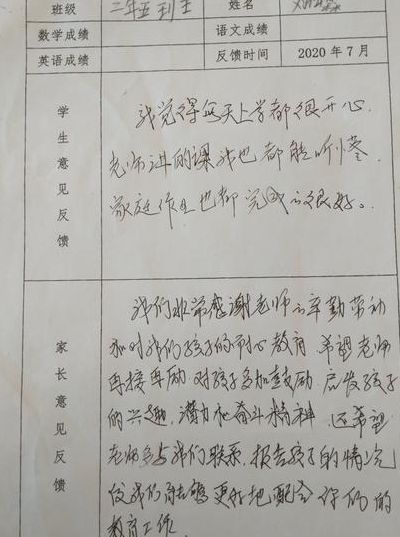 班级 二年五班 姓名
数学成绩 语文成绩
英语成绩 反馈时间 2020年7月
学生意见反馈
我觉得每天上学都很开心.
老师讲的课我也都能听懂.
家庭作业也都完成的很好。
家长意见反馈
我们非常感谢老师的辛勤劳动
和对我们孩子的耐心教育 希望老师
再接再励 对孩子多加鼓励 启发孩子
的兴趣,潜力和奋斗精神 还希望
老师多与我们联系,报告孩子的情况
使我们能够更好地配合你们的
教育工作